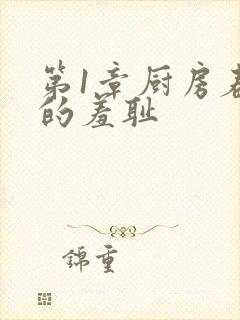 第1章厨房
的羞耻
锦重